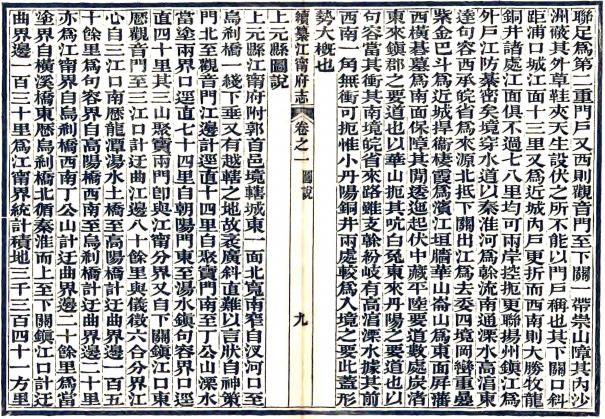 聯足爲第二重門戸又西則觀音門至下關一帶崇山障其內沙
洲蔽其外草鞋夾天生設伏之所不能以門戸稱也其下關口斜
距浦口城江面十三里又爲近城內戸更折而西南則大勝牧龍
銅井諸處江面俱不過七八里均可兩岸控扼更聯揚州鎮江爲
外戸江防綦密矣境穿水道以秦淮河爲幹流南通溧水高湻東
達句容西承皖省爲來源北抵下關出江爲去委四境岡巒重疊
紫金巴斗爲近城捍衞棲霞爲濱江垣牆華山崙山爲東面屏藩
西橫碁墓爲南面保障其閒逶迤起伏中藏平陸要道數處炭渚
東來鎮郡之要道也以華山扼其吭白兔東來丹陽之要道也以
句容當其衝其南境皖省來路雖支幹紛岐有高湻溧水據其前
西南一角無衝可扼惟小丹陽銅井兩處較爲入境之要此蓋形
勢大概也
續纂江甯府志 卷之一 圖說 九
上元縣圖說
上元縣江甯府附郭首邑境轄城東一面北寬南窄自汊河口至
烏刹橋一綫下垂又有越轄之地故袤廣斜直難以言狀自神策
門北至觀音門江邊計逕直十四里自聚寶門南至丁公山溧水
當塗兩界口逕直七十四里自朝陽門東至湯水鎮句容界口逕
直四十里其三山聚寶兩門卽與江甯分界又自下關鎮江口東
歷觀音門至三江口計迂曲江邊八十餘里與儀徵六合分界江
心自三江口南歷龍潭湯水土橋至高陽橋計迂曲界邊一百五
十餘里爲句容界自高陽橋西南至烏刹橋計迂曲界邊二十里
亦爲江甯界自烏刹橋西南丁公山計迂曲界邊二十餘里爲當
塗界自橫溪橋東歷烏刹橋北循秦淮而上至下關鎮江口計迂
曲界邊一百三十里爲江甯界統計積地三千三百四十一方里